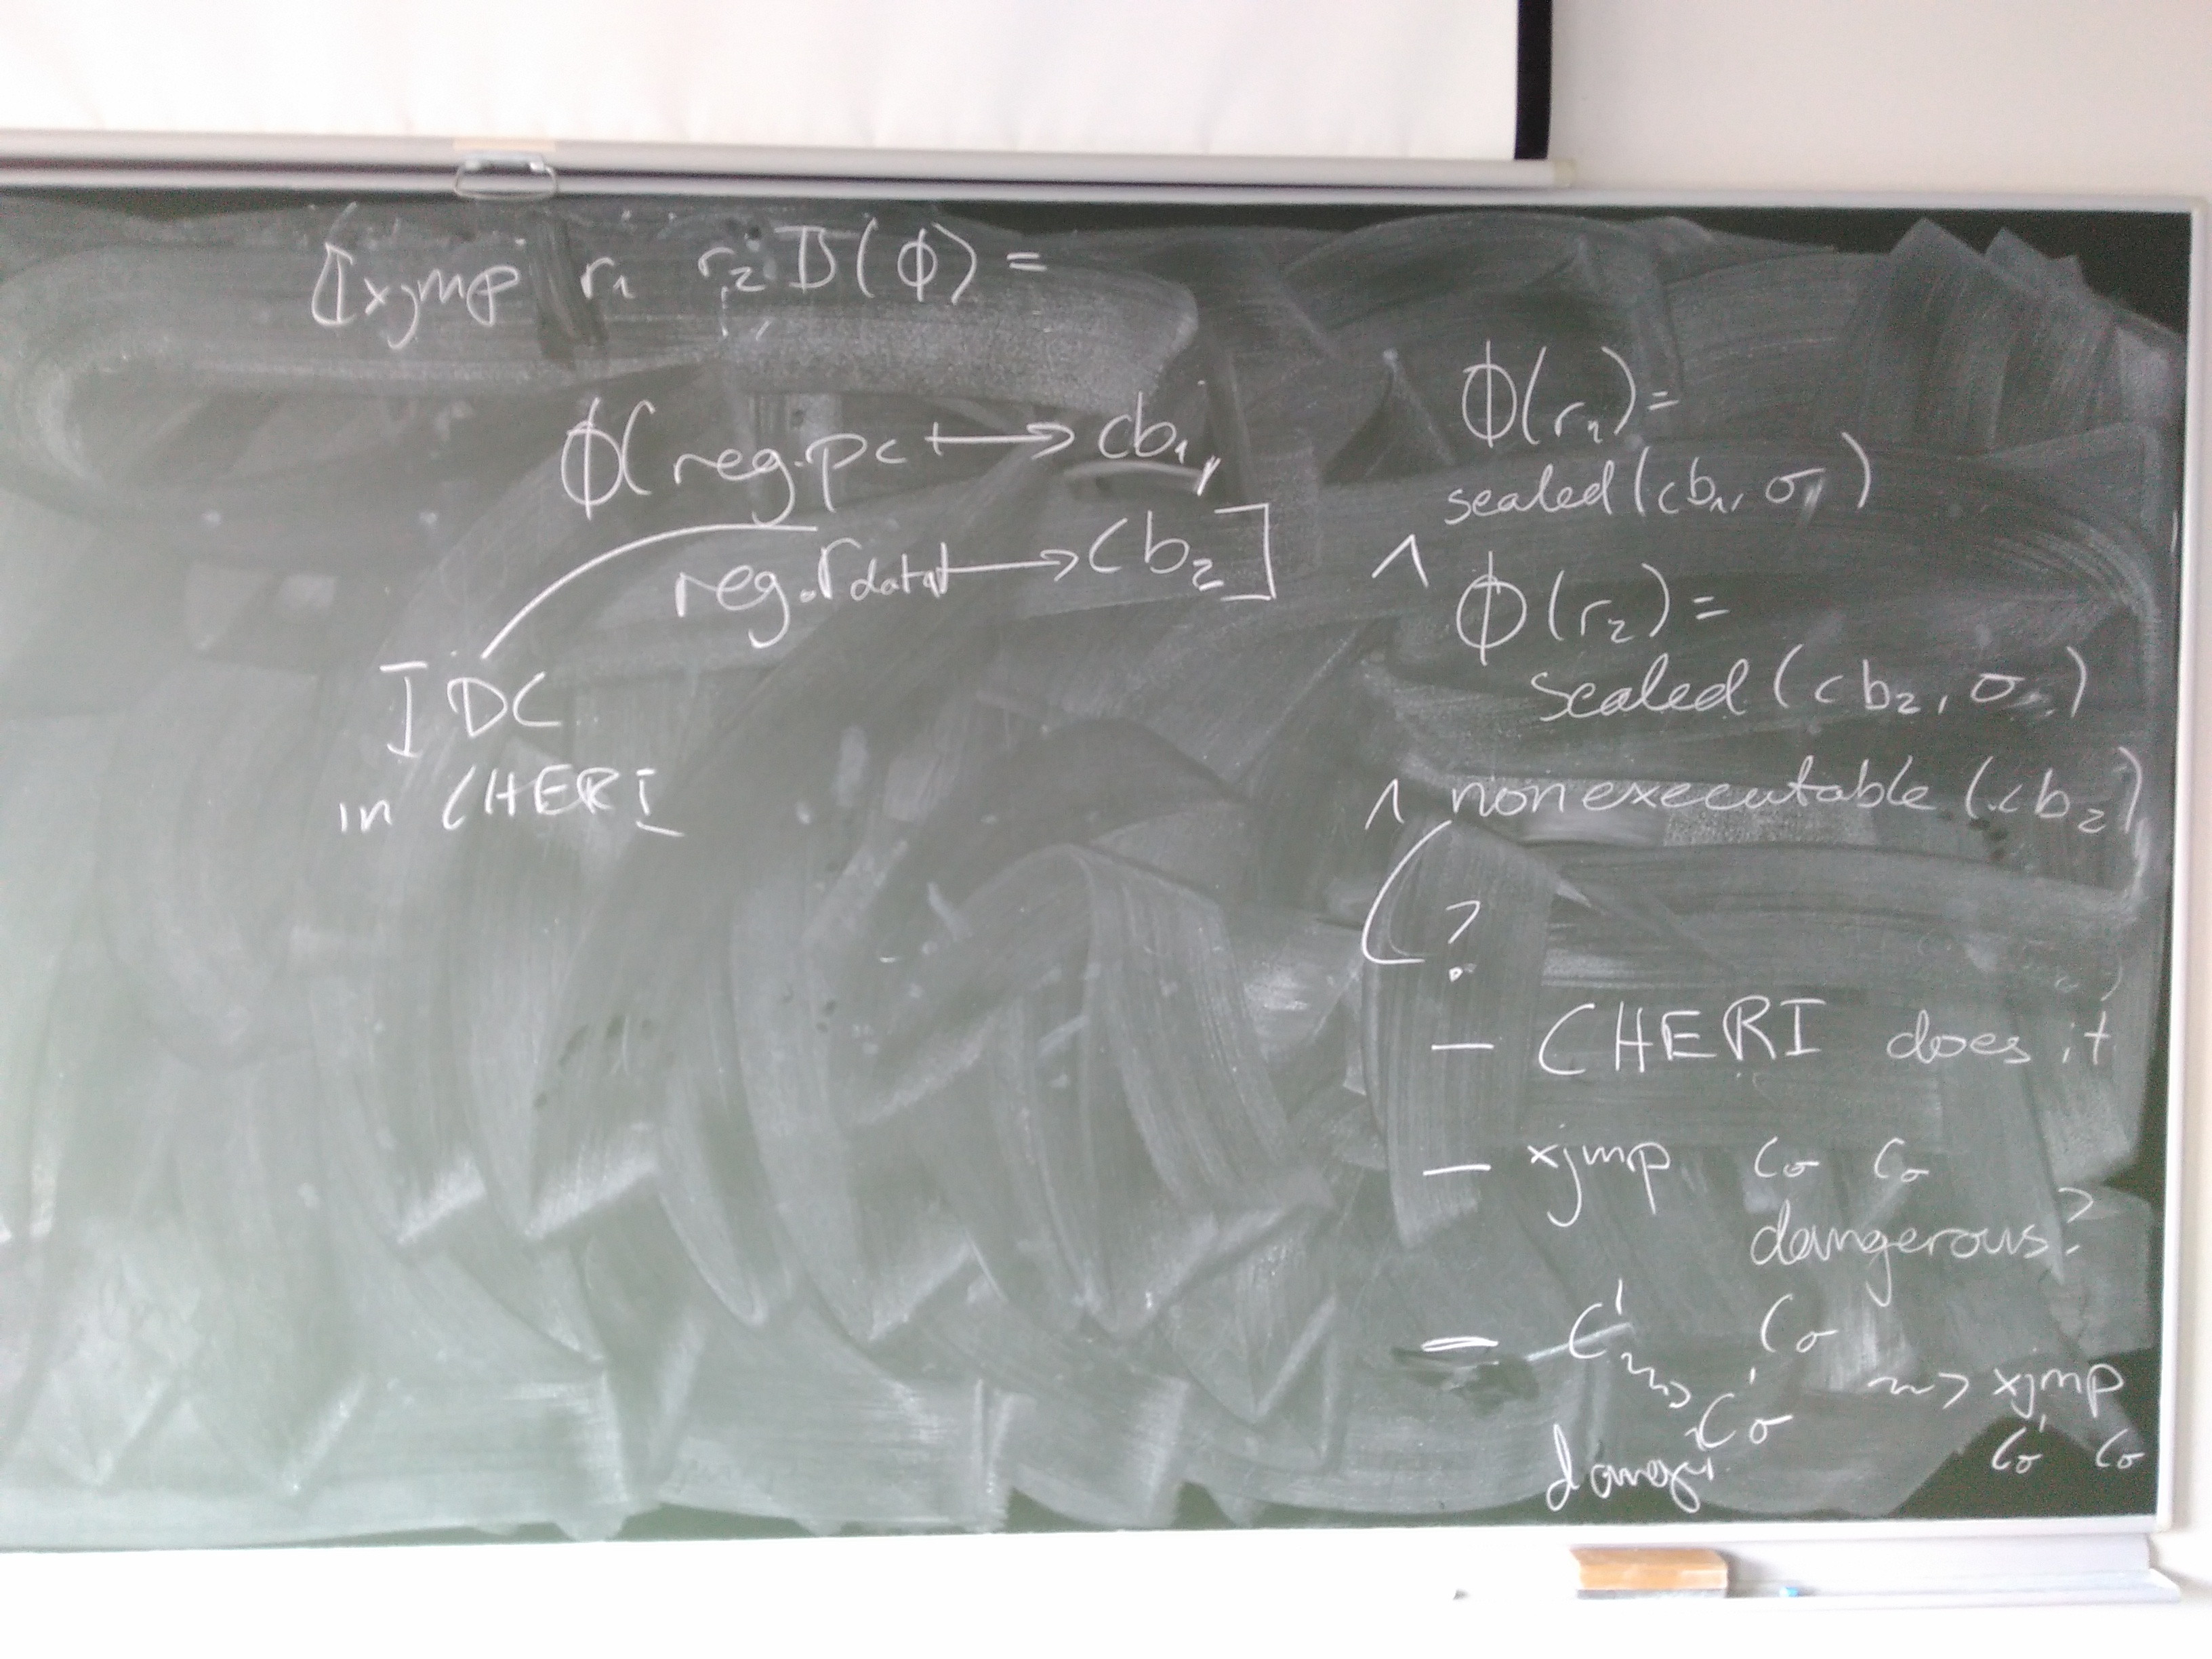 ⟦xjmp r₁ r₂⟧(ϕ) =
ϕ[reg.pc ↦ cb₁,
reg.r_data ↦ cb₂]
IDC
in CHERI
ϕ(r₁) =
sealed(cb₁, σ)
∧ ϕ(r₂) =
sealed(cb₂, σ)
∧ nonexecutable(cb₂)
?
— CHERI does it
— xjmp c_σ c_σ
dangerous?
— c' c_σ
⇝ c'_σ ⇝ xjmp
c'_σ c_σ